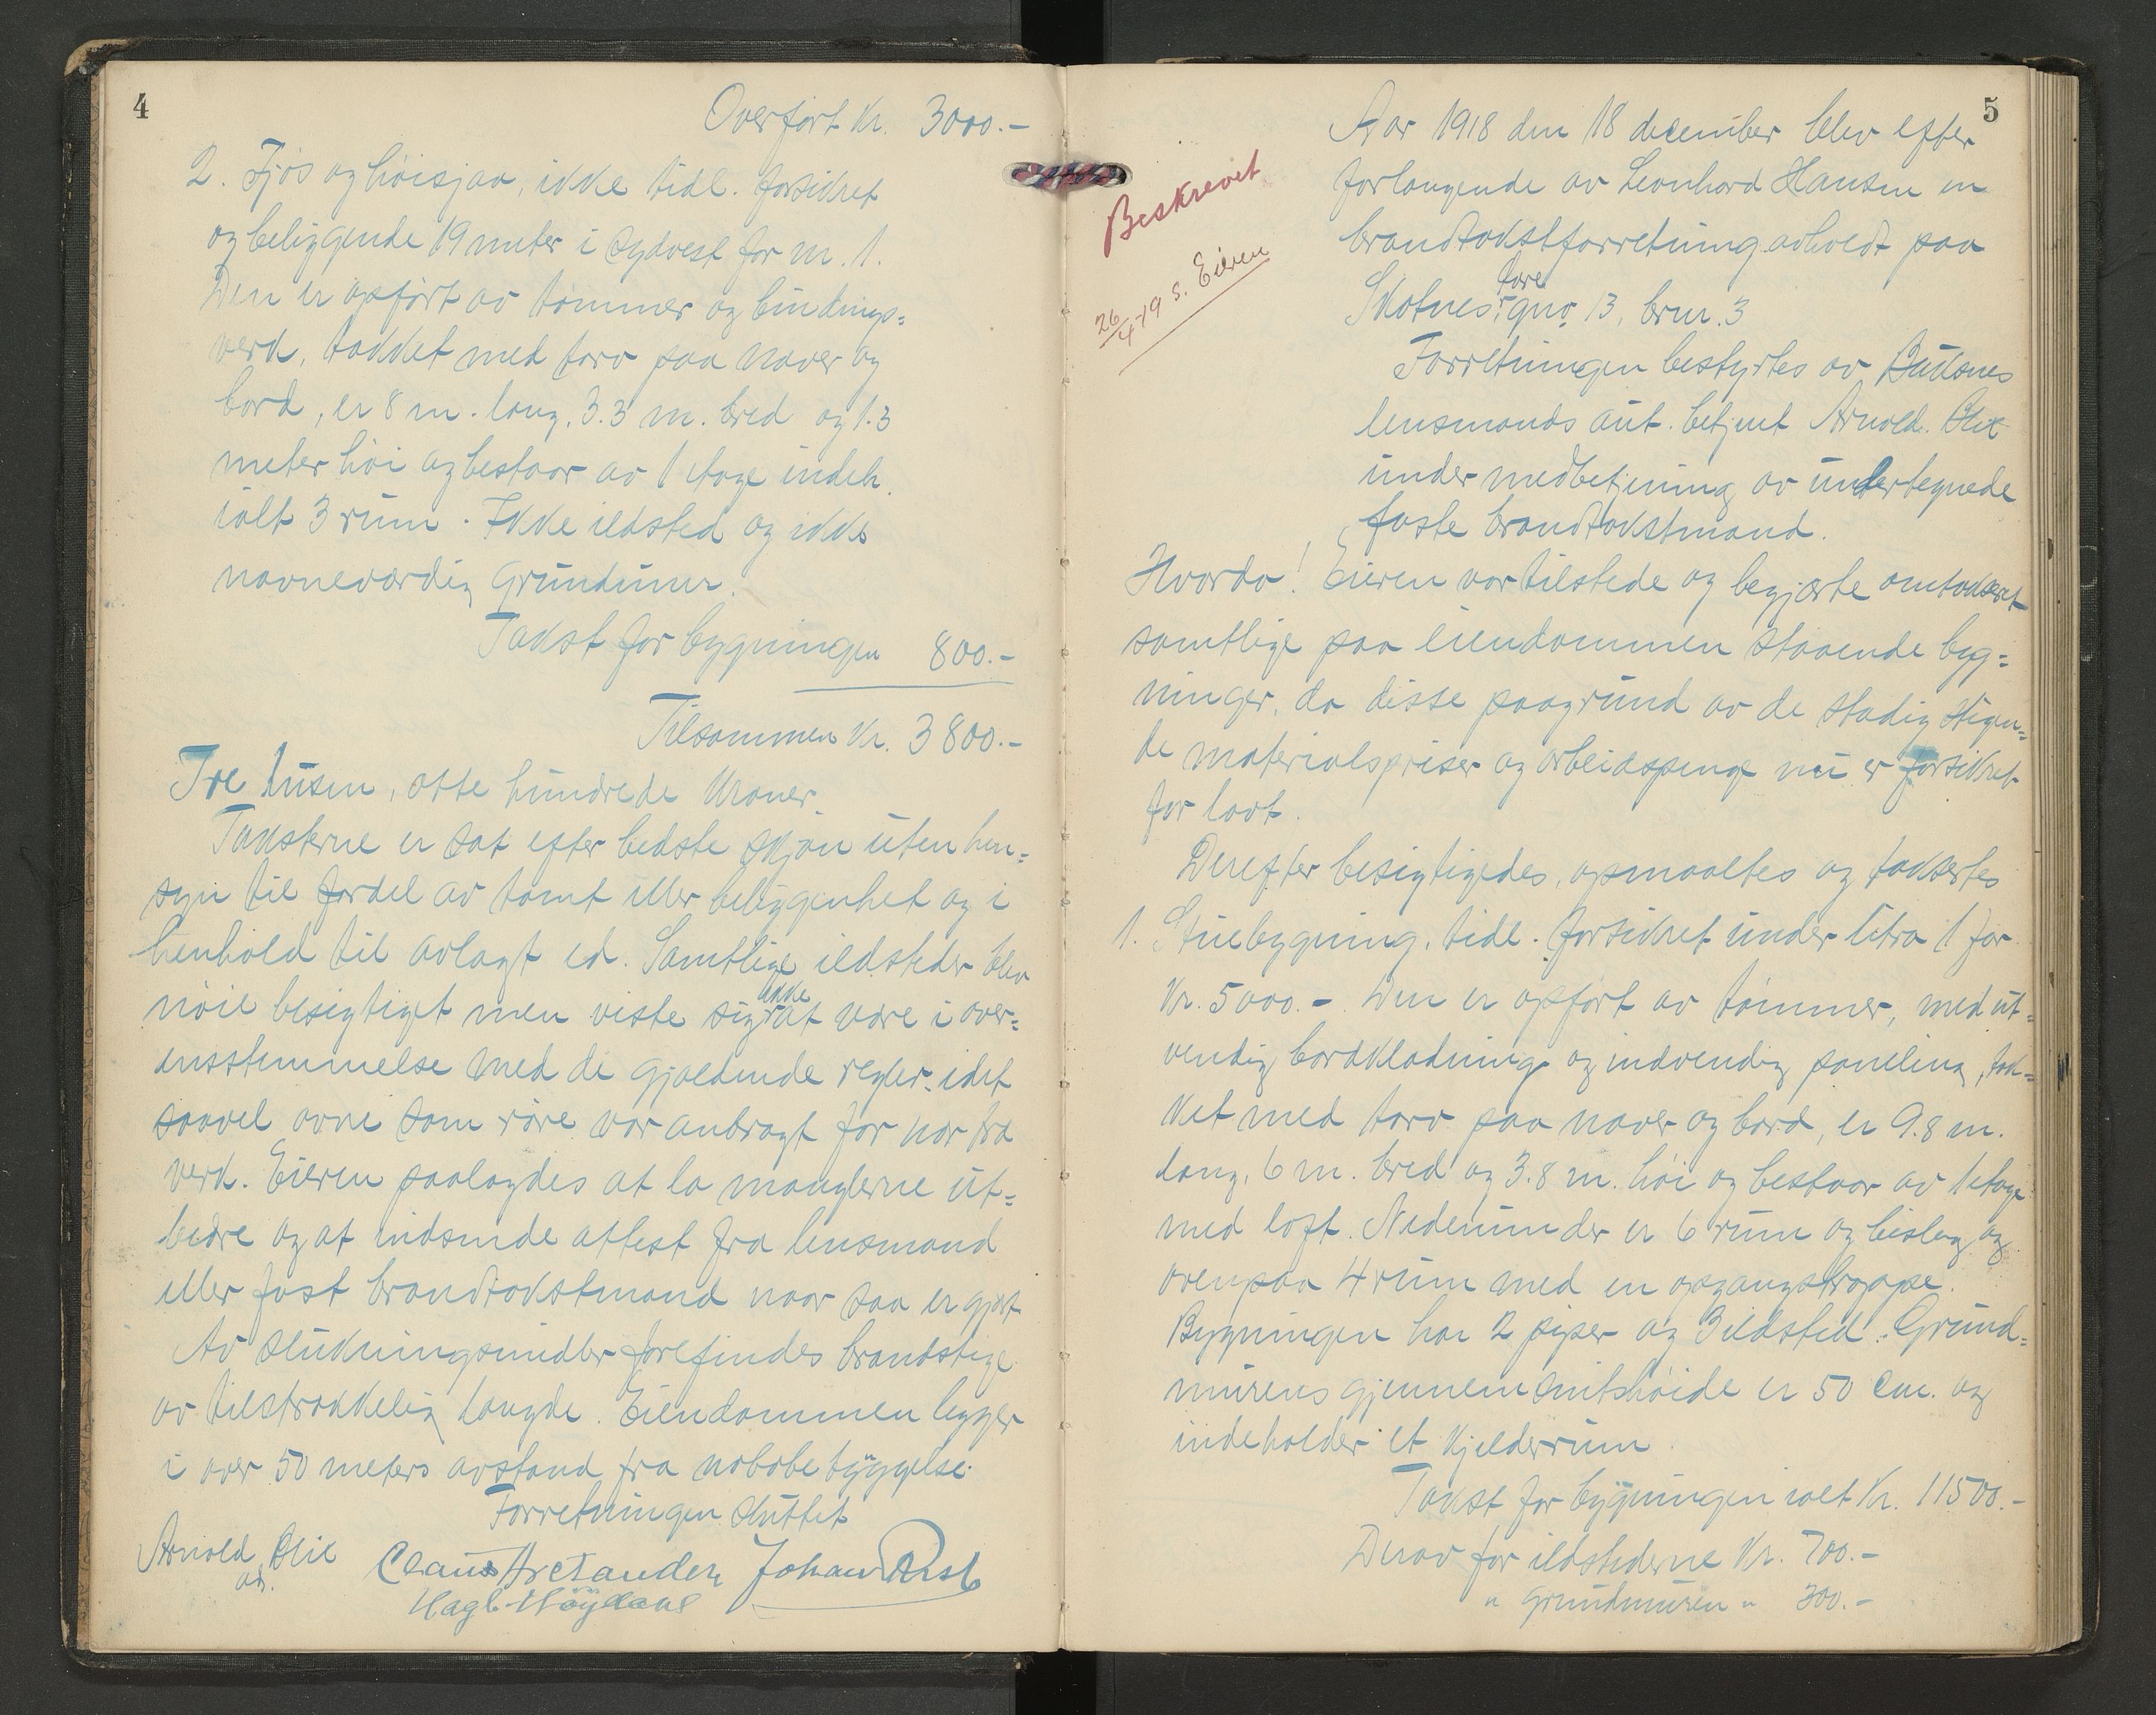 4
Overført Kr. 3000.-
2. Fjøs og høisjaa, ikke tidl. forsikret
og beliggende 19 meter i sydvest for nr. 1.
Den er opført av tømmer og bindings=
verk, takket med torv paa næver og
bord, er 8 m. lang, 3.3 m. bred og 1.3
meter høi og bestaar av 1 etage indeh.
ialt 3 rum. Ikke ildsted og ikke
navneværdig Grundmur.
Takst for bygningen 800.-
Tilsammen Kr. 3800.-
Tre tusen, otte hundrede Kroner.
Taksterne er sat efter bedste skjøn uten hen=
syn til fordel av tomt eller beliggenhet og i
henhold til avlagt ed. Samtlige ildsteder blev
nøie besigtiget men viste sig ikke at være i over=
ensstemmelse med de gjældende regler, idet
saavel ovne som røre var anbragt for nær træ
verk. Eieren paalagdes at la manglerne ut=
bedre og at indsende attest fra lensmand
eller fast brandtakstmand naar saa er gjort
Av slukningsmidler forefindes brandstige
av tilstrækkelig længde. Eiendommen ligger
i over 50 meters avstand fra nabobebyggelse.
Forretningen sluttet
Arnold Blix Claus Arctander Johan Rist
as.
Hagb. Høydahl
5
Beskrevet
26/4-19 s. Eieren
Aar 1918 den 18 december blev efter
forlangende av Leonhard Hansen en
brandtakstforretning avholdt paa
Skotnes tore gno. 13, brnr. 3
Forretningen bestyrtes av Buksnes
lensmands aut. betjent Arnold Blix
under medbetjening av undertegnede
faste brandtakstmænd.
Hvorda! Eieren var tilstede og begjærte omtakseret
samtlige paa eiendommen staaende byg=
ninger, da disse paagrund av de stadig stigen=
de materialspriser og arbeidspenge nu er forsikret
for lavt.
Derefter besigtigedes, opmaaltes og taksertes
1. Stuebygning, tidl. forsikret under litra 1 for
Kr. 5000.- Den er opført av tømmer, med ut=
vendig bordklædning og indvendig paneling, tæk=
ket med torv paa næver og bord, er 9.8 m.
lang, 6 m. bred og 3.8 m. høi og bestaar av 1 etage
med loft. Nedenunder er 6 rum og bislag og
ovenpaa 4 rum med en opgangstrappe.
Bygningen har 2 piper og 3 ildsted. Grund=
murens gjennemsnitshøide er 50 cm. og
indeholder et Kjelderrum
Takst for bygningen ialt Kr. 11500.-
Derav for ildstederne Kr. 700.-
" Grundmuren " 300.-